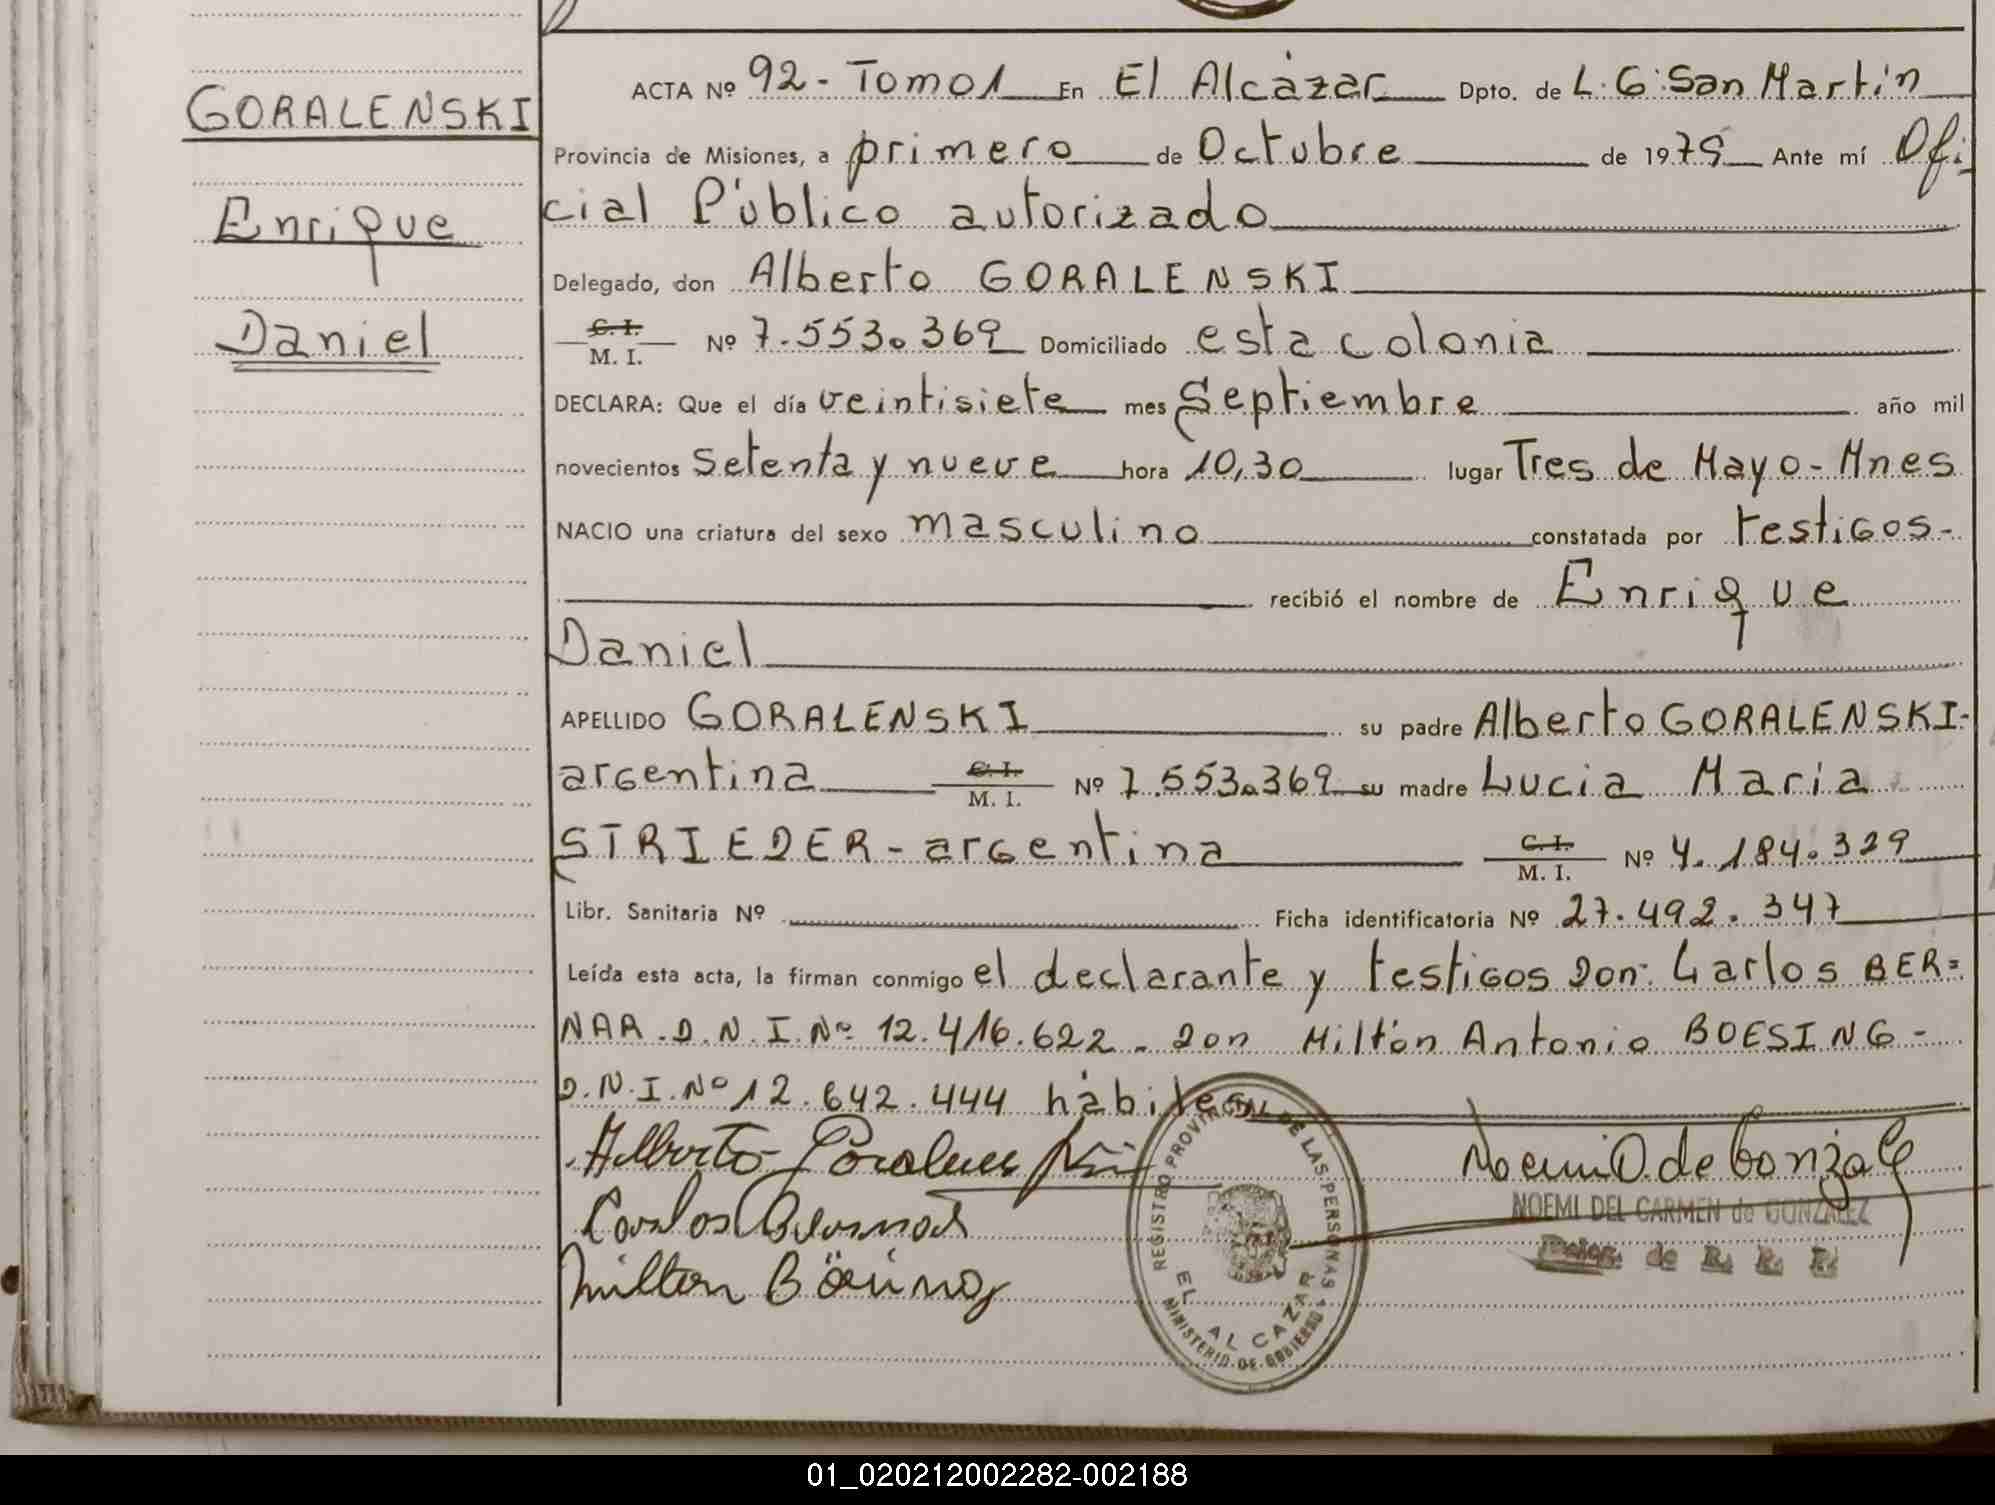 GORALENSKI
Enrique
Daniel
ACTA Nº 92 - Tomo 1 En El Alcázar Dpto. de L. G. San Martín
Provincia de Misiones, a primero de Octubre de 1979 Ante mí Ofi-
cial Público autorizado
Delegado, don Alberto GORALENSKI
C. I.
M. I. Nº 7.553.369 Domiciliado esta colonia
DECLARA: Que el día veintisiete mes Septiembre año mil
novecientos setenta y nueve hora 10,30 lugar Tres de Mayo - Mnes
NACIO una criatura del sexo masculino constatada por testigos -
recibió el nombre de Enrique
Daniel
APELLIDO GORALENSKI su padre Alberto GORALENSKI -
argentina C. I. M. I. Nº 7.553.369 su madre Lucia Maria
STRIEDER - argentina C. I. M. I. Nº 4.184.329
Libr. Sanitaria Nº Ficha identificatoria Nº 27.492.347
Leída esta acta, la firman conmigo el declarante y testigos Don: Carlos BER=
NAR. D.N.I. Nº 12.416.622 - Don Miltón Antonio BOESING -
D.N.I. Nº 12.642.444 hábiles
Alberto Goralenski
Carlos Bernar
Milton
Noemi D. de Gonzalez
NOEMI DEL CARMEN de GONZALEZ
de R. P. P.
REGISTRO PROVINCIAL DE LAS PERSONAS
EL ALCAZAR
MINISTERIO DE GOBIERNO
01_020212002282-002188